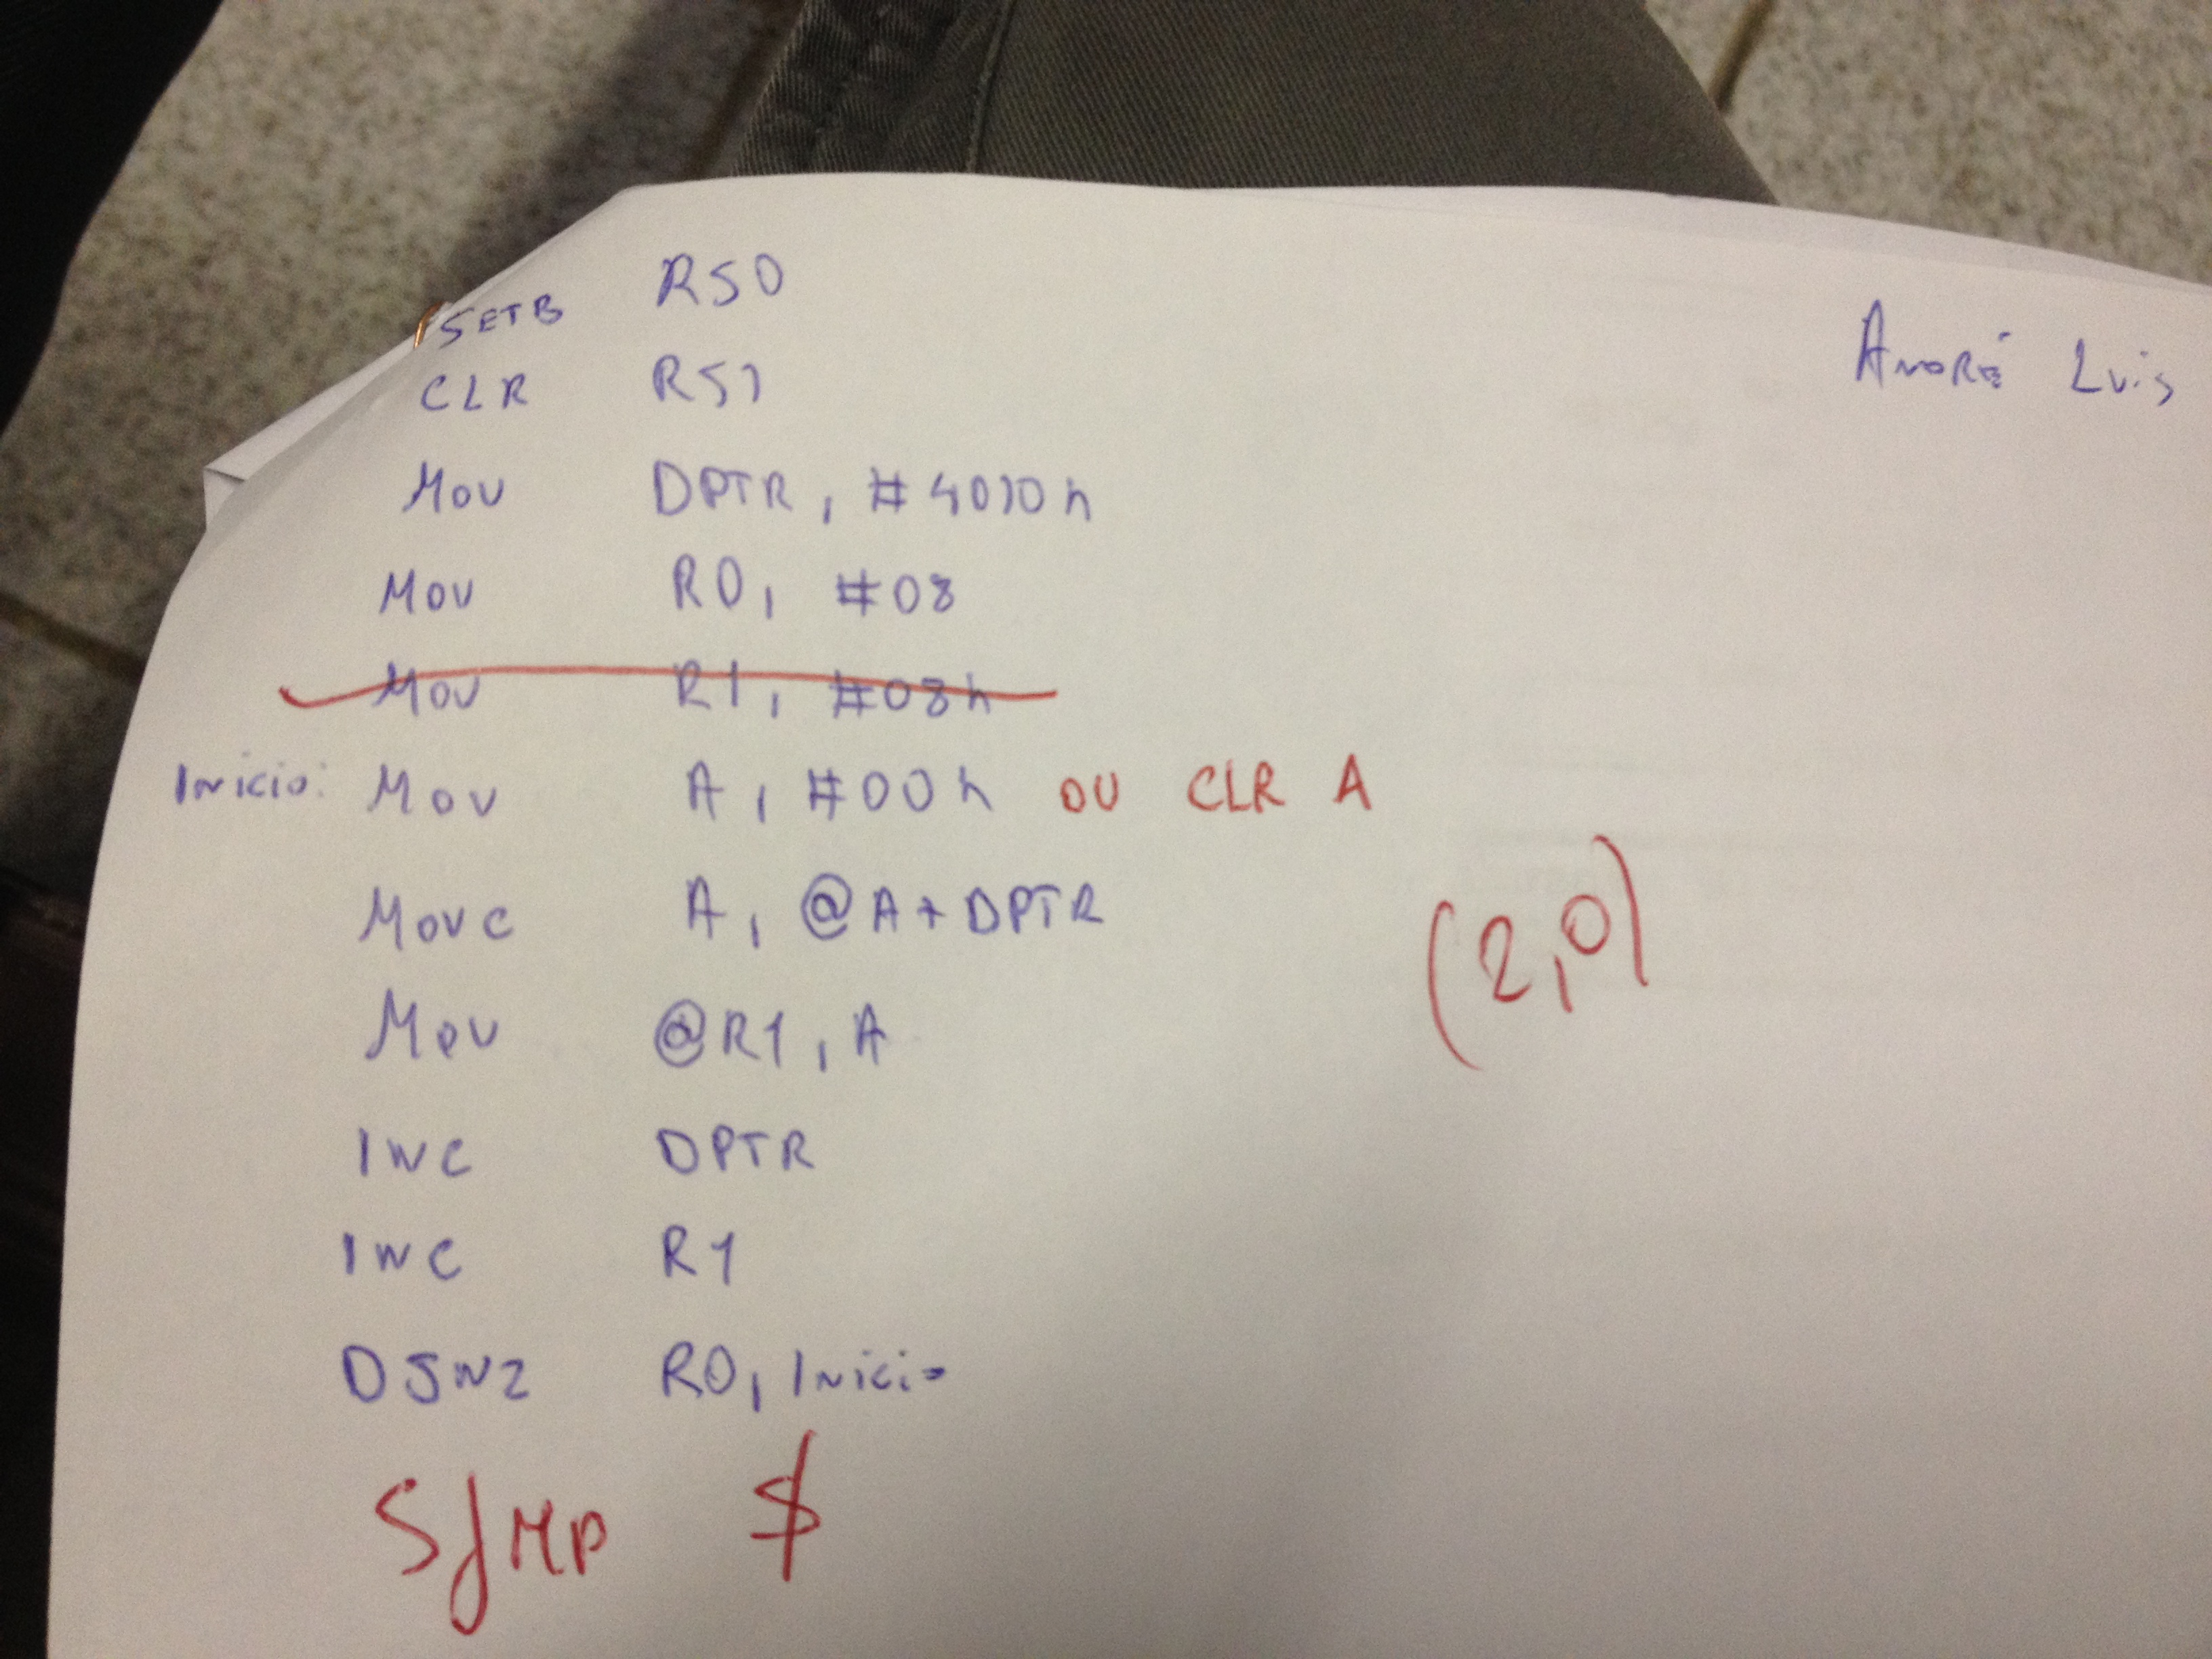 André Luis
SETB RS0
CLR RS1
MOV DPTR, #4010h
MOV R0, #08
MOV R1, #08h
Inicio: MOV A, #00h OU CLR A
MOVC A, @A+DPTR
MOV @R1, A
INC DPTR
INC R1
DJNZ R0, Inicio
SJMP $
(2,0)